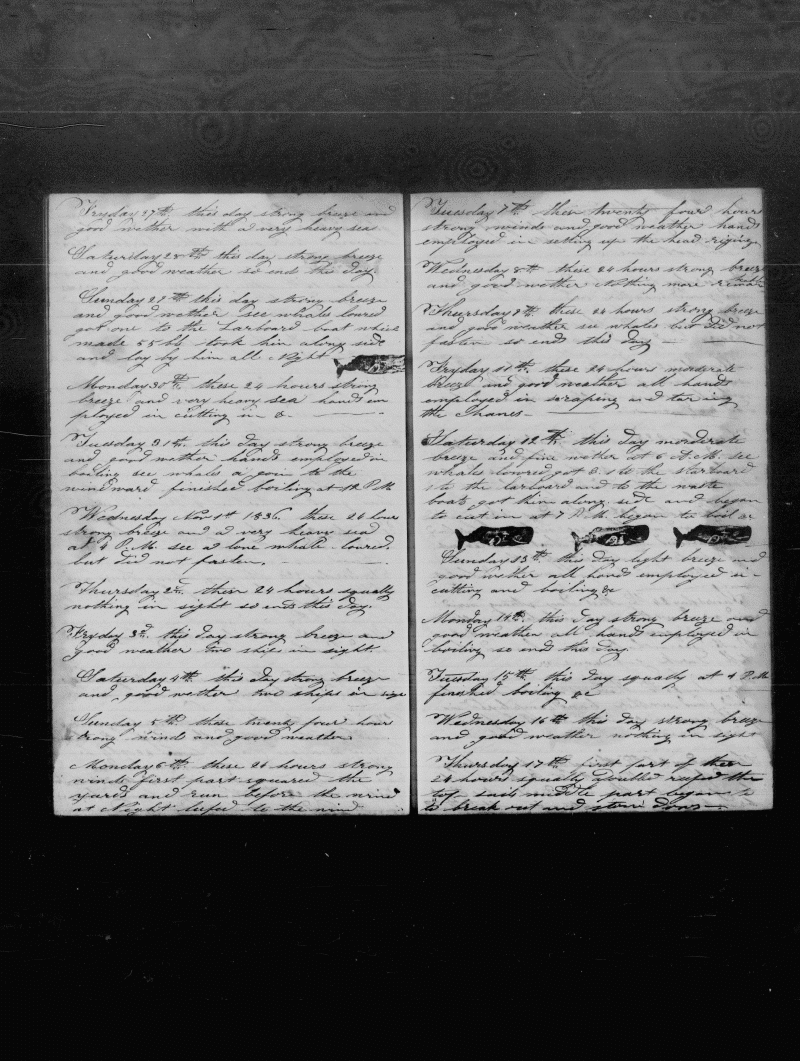 Fryday 27th this day strong breeze and
good wether with a very heavy sea
Saturday 28th this day strong breeze
and good weather so end this day
Sunday 29th this day strong breeze
and good wether see whales loured
got one to the Larboard boat which
made 55 bbl took him along side
and lay by him all Night
Monday 30th these 24 hours strong
breeze and very heavy sea hands em
ployed in cutting in &
Tuesday 31th this day strong breeze
and good wether hands employed in
boiling see whales a goin to the
windward finished boiling at P M
Wednesday Nov 1st 1836 these 24 hour
strong breeze and a very heavy sea
at 4 P.M. see a lone whale loured
but did not fasten
Thursday 2d these 24 hours squally
nothing in sight so ends this day.
Fryday 3d this day strong breeze and
good weather two ships in sight
Saturday 4th this day strong breeze
and good wether two ships in sigt
Sunday 5th these twenty four hour
strong wind and good weather
Monday 6th these 24 hours strong
winds first part squared the
yards and run before the wind
at Night lufed to the wind
Tuesday 7th these twenty four hours
strong winds and good weather hands
employed in setting up the head riging
Wednesday 8th these 24 hours strong breeze
and good wether nothing more remark
Thursday 9th these 24 hours strong breeze
and good weather see whales but did not
fasten so ends this day
Fryday 11th these 24 hours moderate
breeze and good weather all hands
employed in scraping and taring
the chanes
Saturday 12th this day morderate
breeze and fine wether at 6 A.M. see
whales loured got 3 to the starbard
to the larboard and to the waste
boats got him along side and began
to cut in at 7 began to boil
Sunday 13th this day light breeze and
good wether all hands employed in
cutting and boiling &c
Monday 14th this day strong breeze and
good weather all hands employed in
boiling so end this day
Tuesday 15th this day squally at 4 P.M.
finished boiling &c
Wednesday 16th this day strong breeze
and good weather nothing in sight
Thursday 17th first part of these
24 hours squally doubled reefed the
top sails middle part began to
to break out and stow down